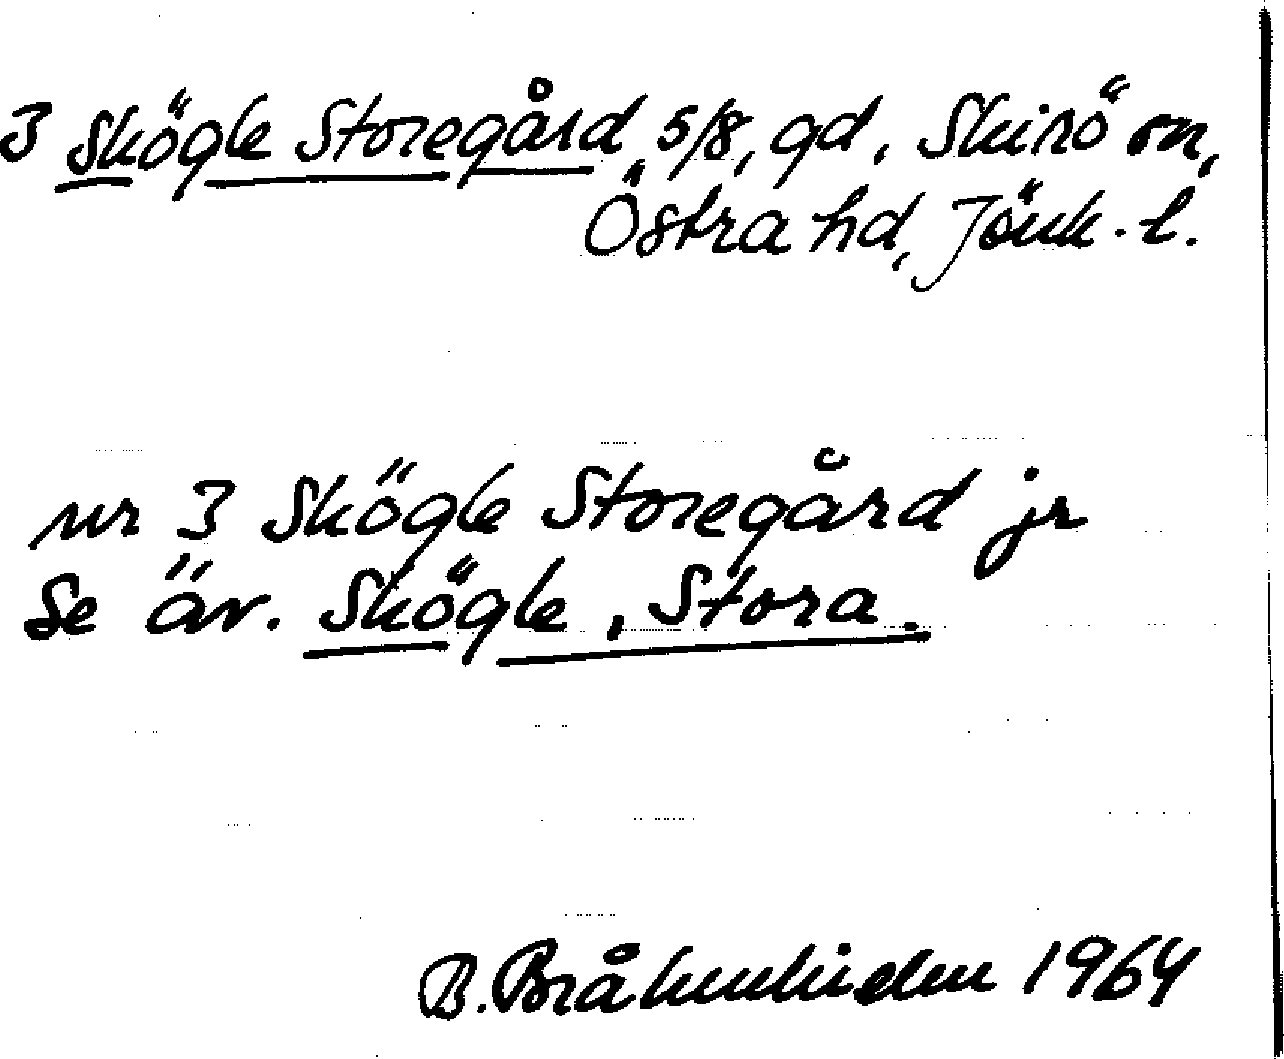 3 Skögle Storegård, 5/8, gd, Skirö sn,
Östra hd, Jönk. l.
nr 3 Skögle Storegård jr
Se äv. Skögle, Stora.
B. 1964